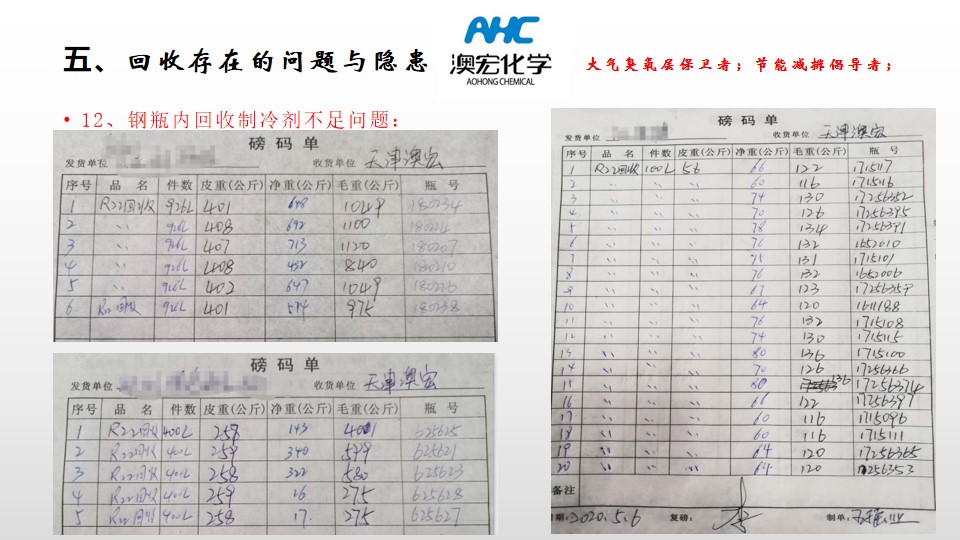 五、回收存在的问题与隐患
AHC
澳宏化学
AOHONG CHEMICAL
大气臭氧层保卫者；节能减排倡导者；
• 12、钢瓶内回收制冷剂不足问题：
磅码单
发货单位 收货单位 天津澳宏
序号 品名 件数 皮重(公斤) 净重(公斤) 毛重(公斤) 瓶号
1 R22回收 926L 401 648 1049 180234
2 〃 926L 408 692 1100
3 〃 926L 407 713 1120 180207
4 〃 926L 408 432 840 180210
5 〃 926L 402 647 1049
6 R22回收 926L 401 574 975 180238
磅码单
发货单位 收货单位 天津澳宏
序号 品名 件数 皮重(公斤) 净重(公斤) 毛重(公斤) 瓶号
1 R22回收 400L 258 143 401 625625
2 R22回收 400L 259 340 599 625621
3 R22回收 400L 258 322 580 625623
4 R22回收 400L 259 16 275 625628
5 R22回收 400L 258 17 275 625627
磅码单
发货单位 收货单位 天津澳宏
序号 品名 件数 皮重(公斤) 净重(公斤) 毛重(公斤) 瓶号
1 R22回收 100L 56 66 122 1715117
2 〃 〃 〃 60 116 1715116
3 〃 〃 〃 74 130 17256352
4 〃 〃 〃 70 126 17256395
5 〃 〃 〃 78 134 17256391
6 〃 〃 〃 76 132 1652010
7 〃 〃 〃 75 131 1715101
8 〃 〃 〃 76 132 1652006
9 〃 〃 〃 67 123 17256359
10 〃 〃 〃 64 120 1611188
11 〃 〃 〃 76 132 1715108
12 〃 〃 〃 74 130 1715115
13 〃 〃 〃 80 136 1715100
14 〃 〃 〃 70 126 1725366
15 〃 〃 〃 80 136 17256374
16 〃 〃 〃 66 122 17256397
17 〃 〃 〃 60 116 1715096
18 〃 〃 〃 60 116 1715111
19 〃 〃 〃 64 120 17256365
20 〃 〃 〃 64 120 17256353
备注
日期：2020.5.6 复磅： 制单：